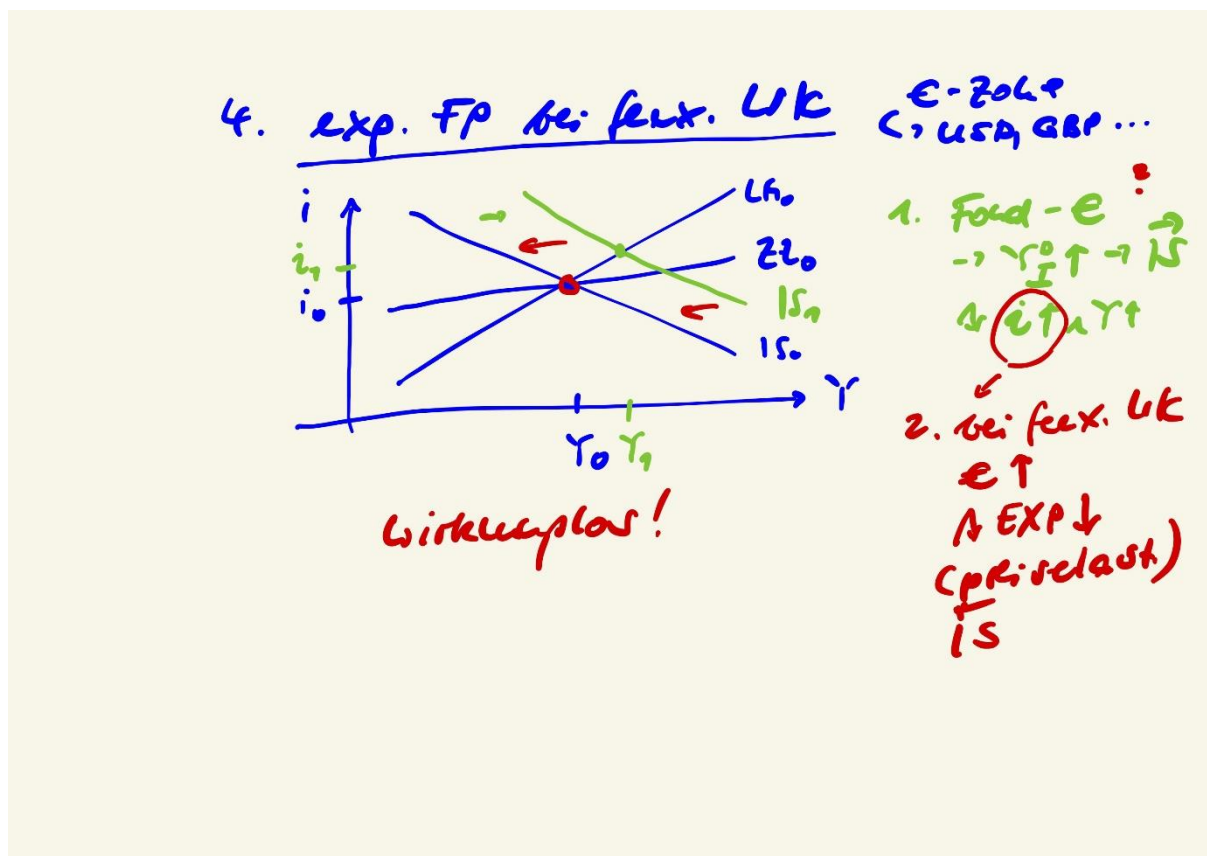 4. exp. FP bei flex. WK
€-Zone
USD, GBP ...
i
LM₀
ZZ₀
i₁
i₀
IS₁
IS₀
Y
Y₀ Y₁
wirkungslos!
1. Fond - €
→ Y ↑ → IS
i↑ Y↑
2. bei flex. WK
€ ↑
EXP ↓
(preiselast.)
IS